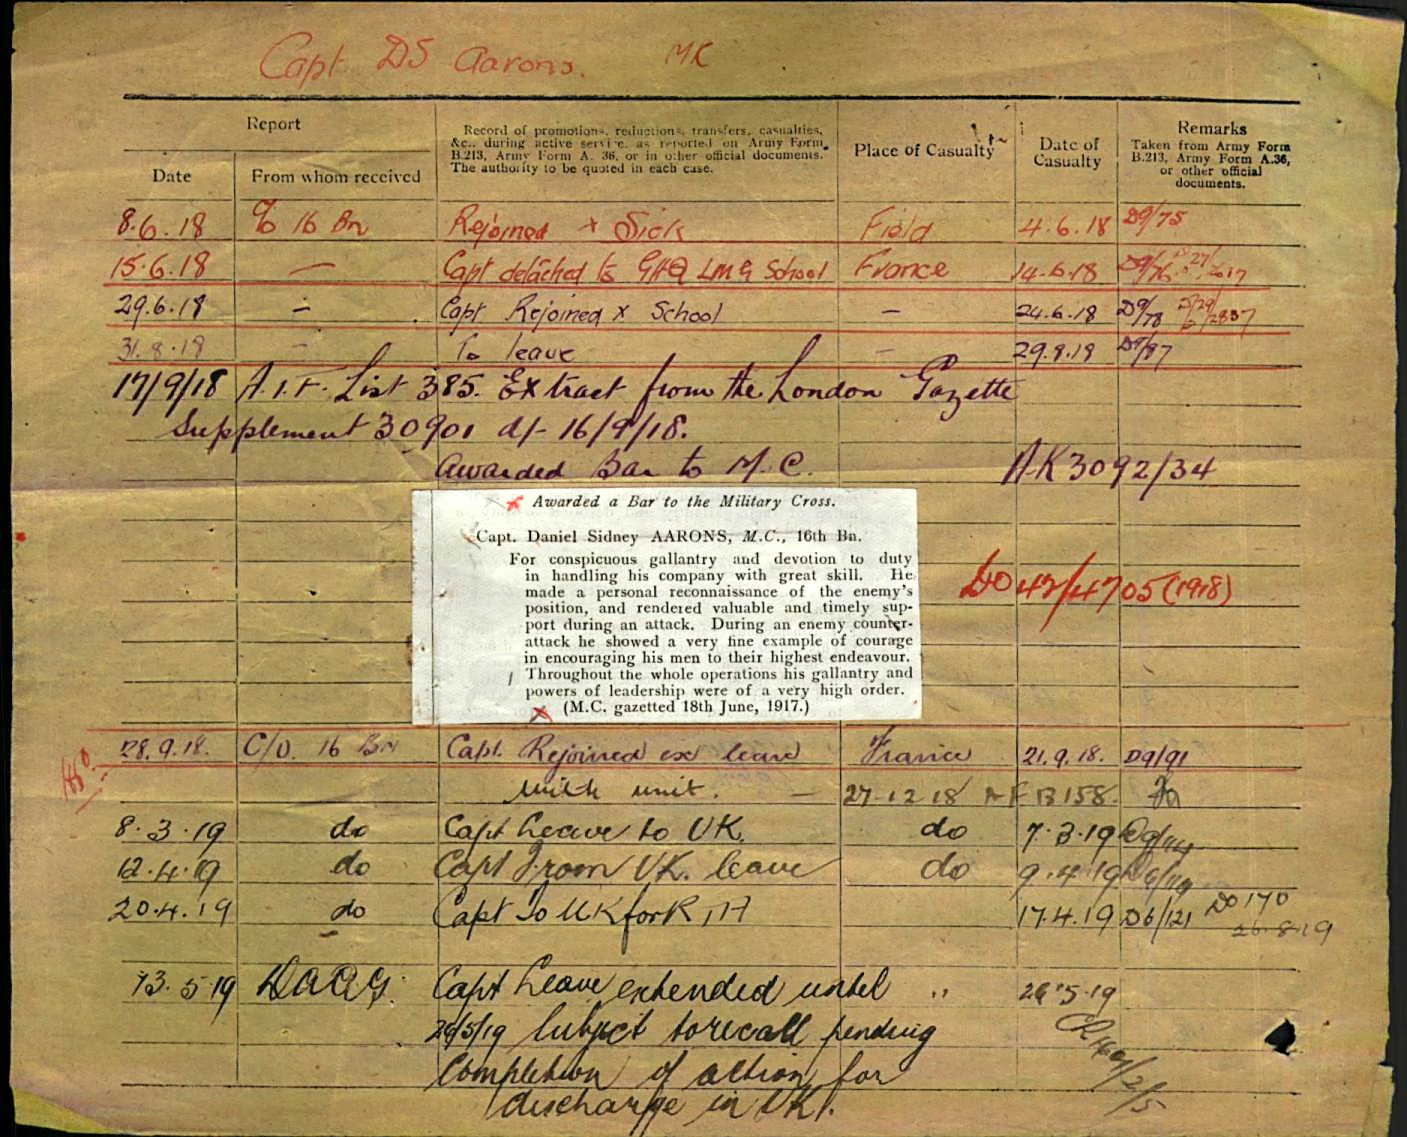 Capt DS Aarons. MK
Report
Record of promotions, reductions, transfers, casualties,
&c., during active service, as reported on Army Form
B.213, Army Form A. 36, or in other official documents.
The authority to be quoted in each case.
Place of Casualty
Date of
Casualty
Remarks
Taken from Army Form
B.213, Army Form A.36,
or other official
documents.
Date From whom received
8.6.18 16 Bn Rejoined x Sick Field 4.6.18 D9/75
15.6.18 — Capt detached to GHQ LMG School France 14.6.18 D9/76
29.6.18 — Capt Rejoined x School — 24.6.18 D9/78
31.8.18 — To leave — 29.8.18 D9/87
17/9/18 A.I.F. List 385. Extract from the London Gazette
Supplement 30901 df 16/9/18.
Awarded Bar to M.C. AK3092/34
Awarded a Bar to the Military Cross.
Capt. Daniel Sidney AARONS, M.C., 16th Bn.
For conspicuous gallantry and devotion to duty
in handling his company with great skill. He
made a personal reconnaissance of the enemy's
position, and rendered valuable and timely sup-
port during an attack. During an enemy counter-
attack he showed a very fine example of courage
in encouraging his men to their highest endeavour.
Throughout the whole operations his gallantry and
powers of leadership were of a very high order.
(M.C. gazetted 18th June, 1917.)
DO 42/4705 (1918)
28.9.18. C/O. 16 Bn Capt. Rejoined ex leave France 21.9.18. D9/91
With unit. — 27.12.18 AF B158.
8.3.19 do Capt Leave to UK. do 7.3.19
12.4.19 do Capt From UK. leave do 9.4.19
20.4.19 do Capt To UK for R, H 17.4.19 D6/121 DO 170
26.8.19
13.5.19 DAAG. Capt Leave extended until " 26.5.19
26/5/19 Subject to recall pending
Completion of action for
discharge in UK.